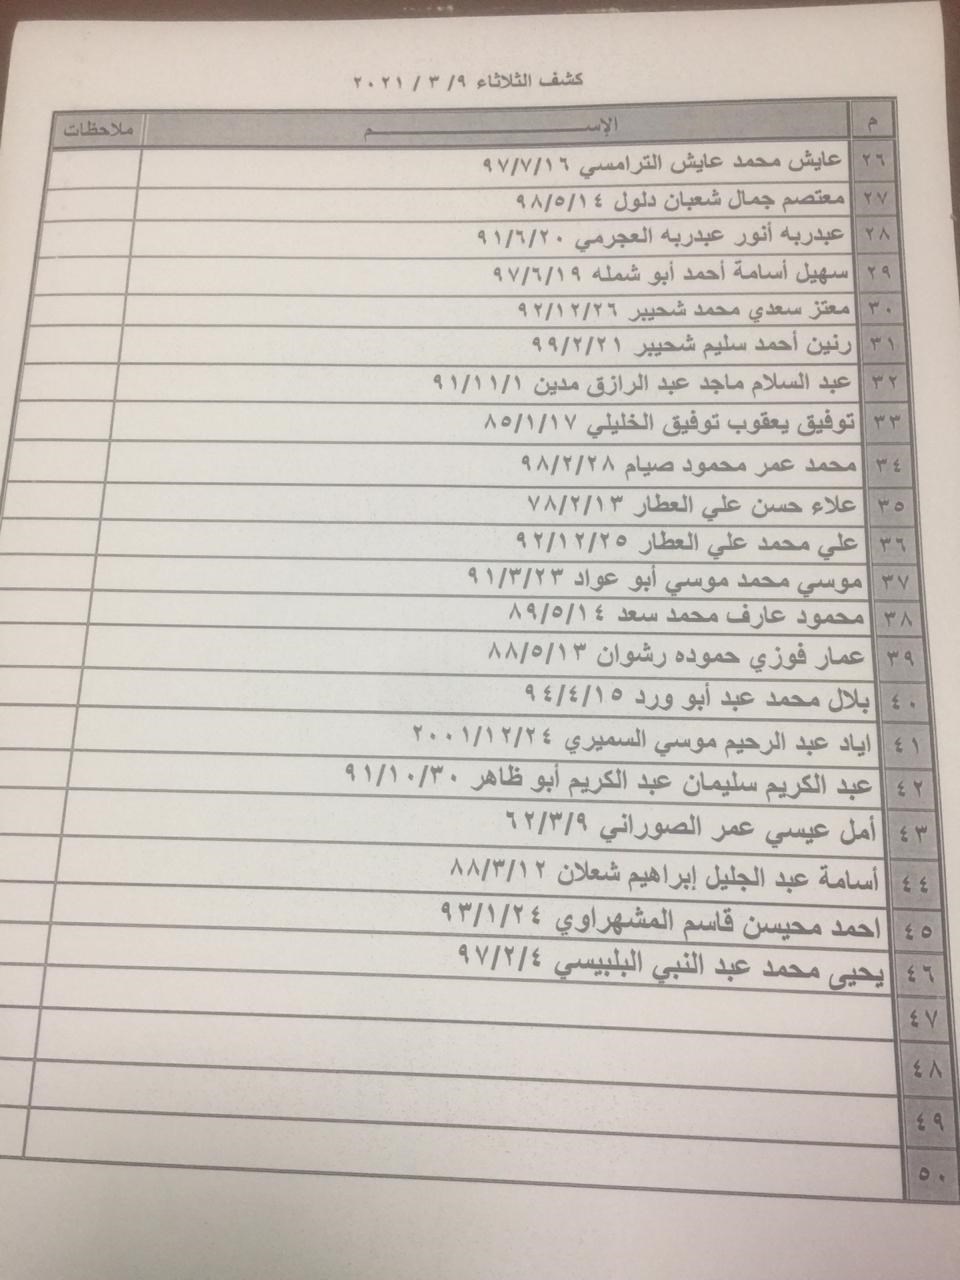 كشف الثلاثاء ٩/ ٣ / ٢٠٢١
م الإســـم ملاحظات
٢٦ عايش محمد عايش الترامسي ٩٧/٧/١٦
٢٧ معتصم جمال شعبان دلول ٩٨/٥/١٤
٢٨ عبدربه أنور عبدربه العجرمي ٩١/٦/٢٠
٢٩ سهيل أسامة أحمد أبو شمله ٩٧/٦/١٩
٣٠ معتز سعدي محمد شحيبر ٩٢/١٢/٢٦
٣١ رنين أحمد سليم شحيبر ٩٩/٢/٢١
٣٢ عبد السلام ماجد عبد الرازق مدين ٩١/١١/١
٣٣ توفيق يعقوب توفيق الخليلي ٨٥/١/١٧
٣٤ محمد عمر محمود صيام ٩٨/٢/٢٨
٣٥ علاء حسن علي العطار ٧٨/٢/١٣
٣٦ علي محمد علي العطار ٩٢/١٢/٢٥
٣٧ موسي محمد موسي أبو عواد ٩١/٣/٢٣
٣٨ محمود عارف محمد سعد ٨٩/٥/١٤
٣٩ عمار فوزي حموده رشوان ٨٨/٥/١٣
٤٠ بلال محمد عبد أبو ورد ٩٤/٤/١٥
٤١ اياد عبد الرحيم موسي السميري ٢٠٠١/١٢/٢٤
٤٢ عبد الكريم سليمان عبد الكريم أبو ظاهر ٩١/١٠/٣٠
٤٣ أمل عيسي عمر الصوراني ٦٢/٣/٩
٤٤ أسامة عبد الجليل إبراهيم شعلان ٨٨/٣/١٢
٤٥ احمد محيسن قاسم المشهراوي ٩٣/١/٢٤
٤٦ يحيى محمد عبد النبي البلبيسي ٩٧/٢/٤
٤٧
٤٨
٤٩
٥٠